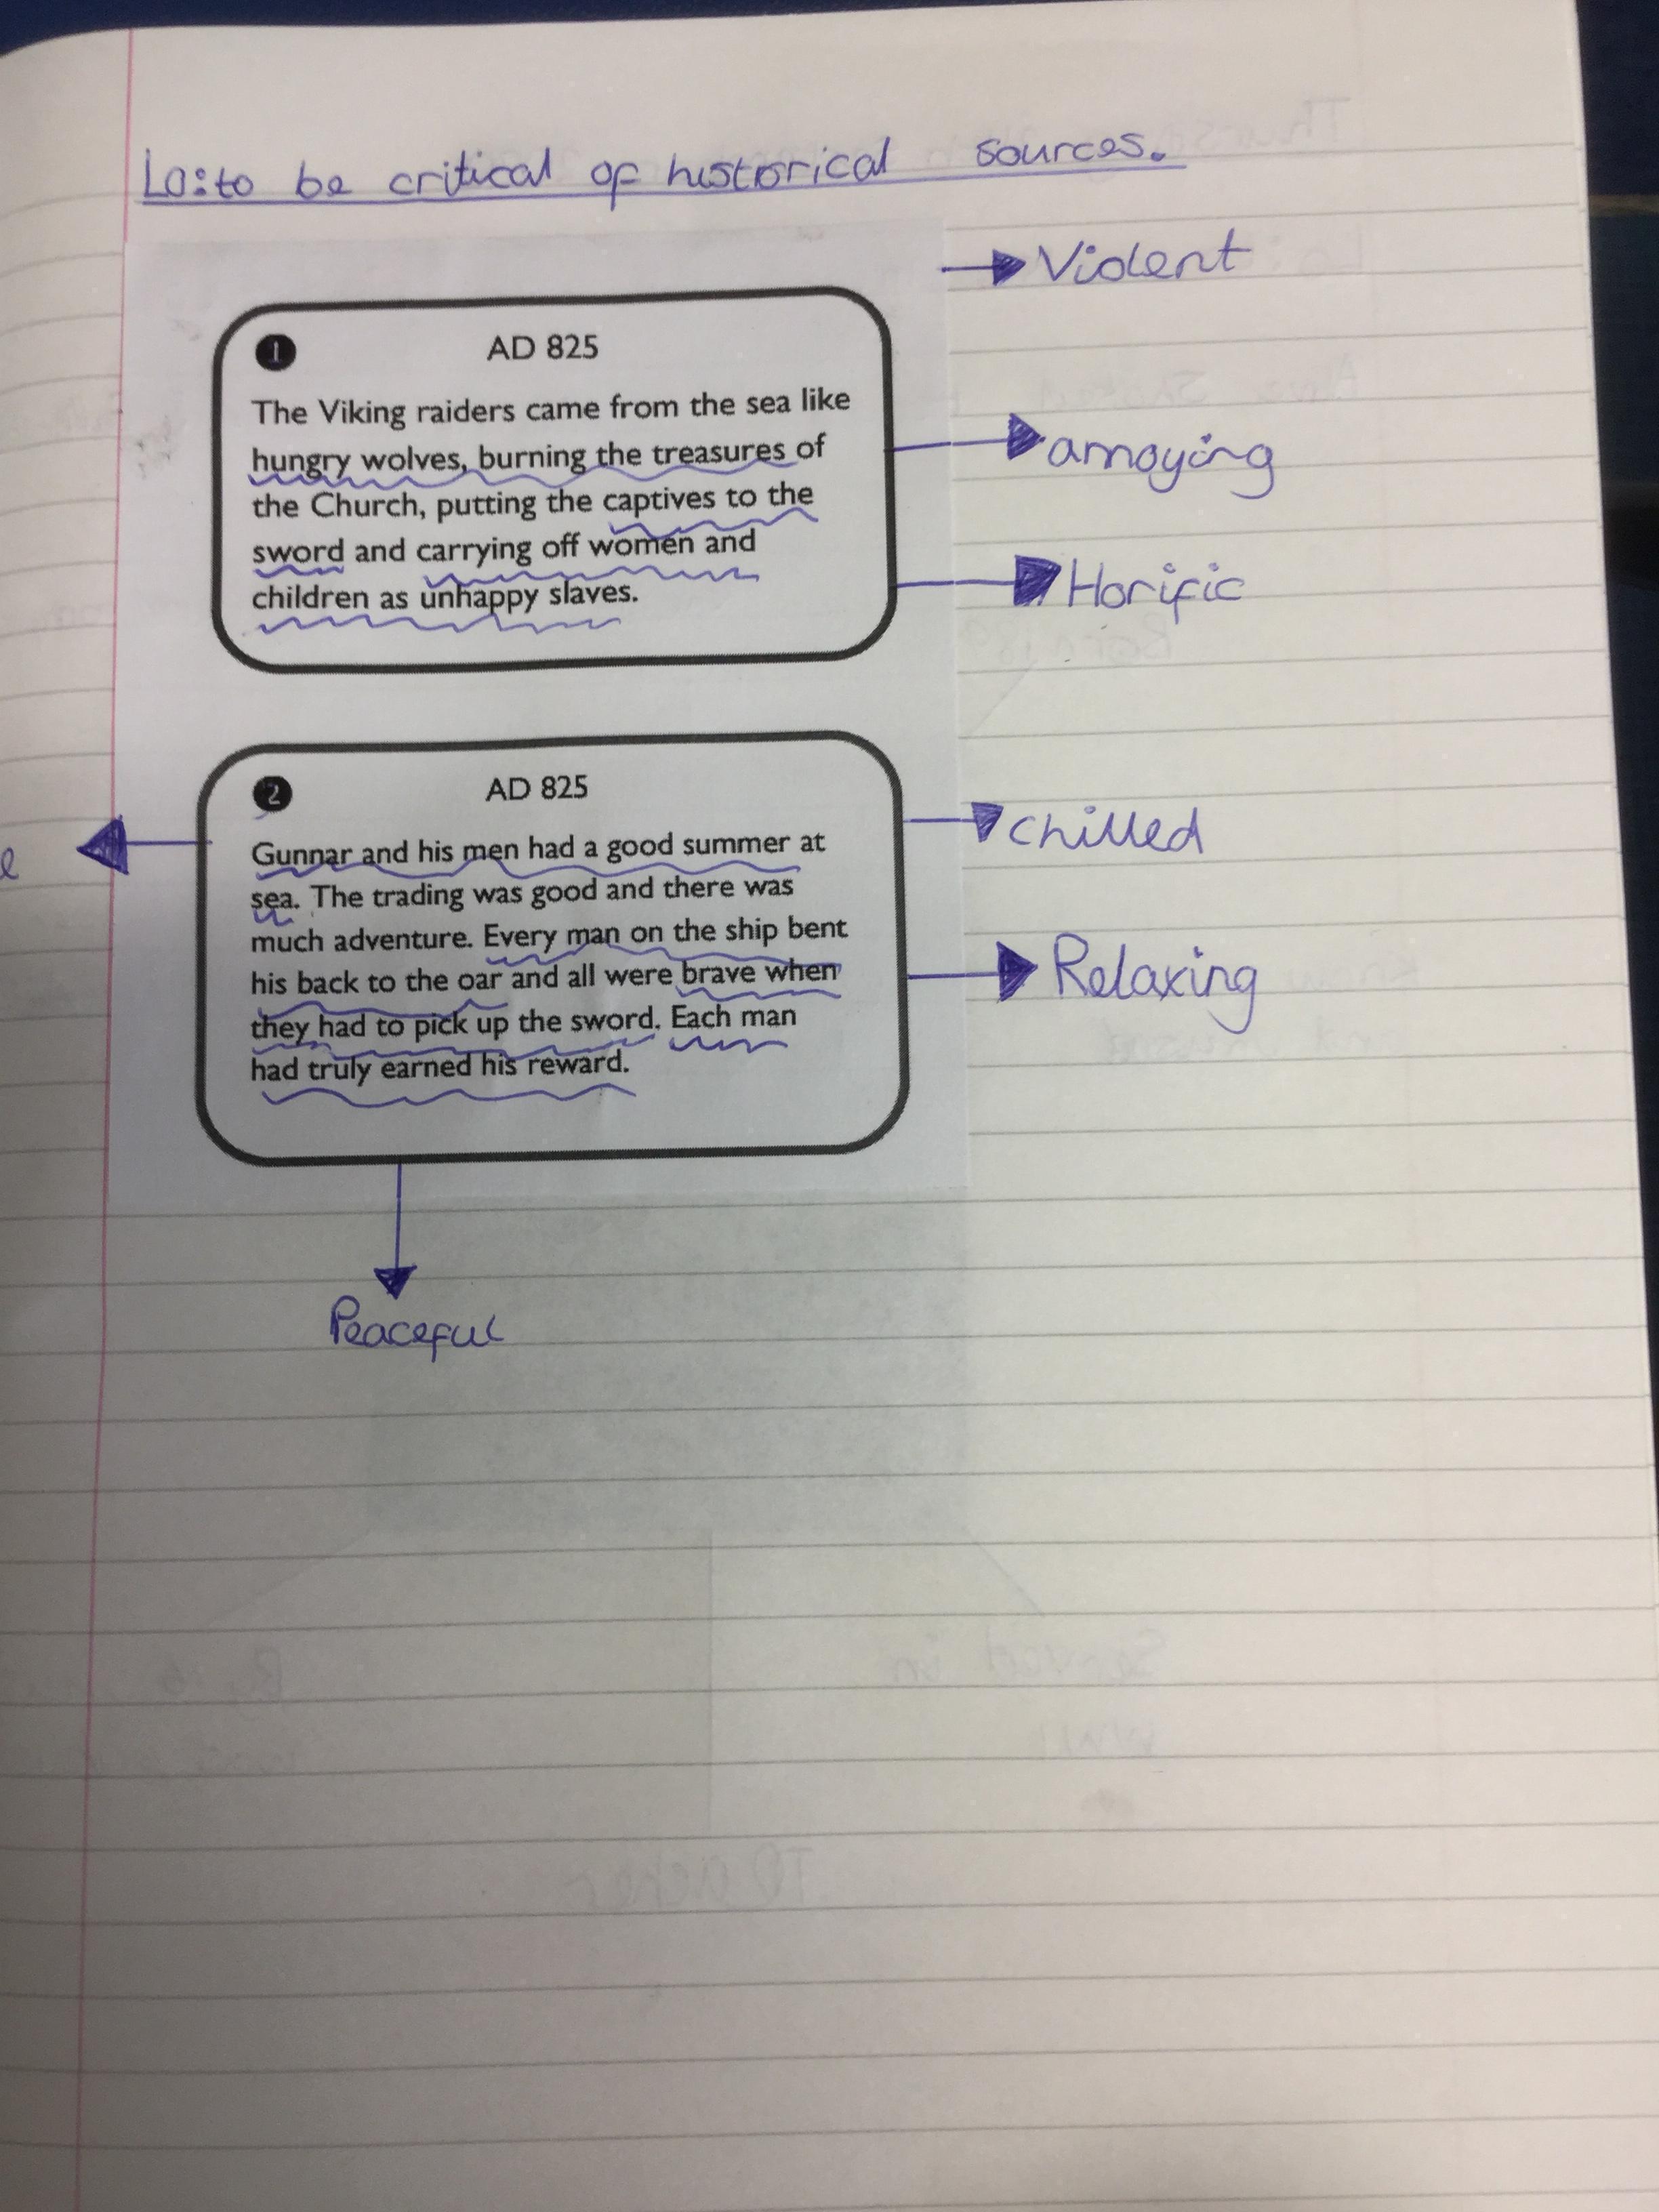 Lo: to be critical of historical sources.
Violent
1 AD 825
The Viking raiders came from the sea like
hungry wolves, burning the treasures of
the Church, putting the captives to the
sword and carrying off women and
children as unhappy slaves.
annoying
Horific
2 AD 825
Gunnar and his men had a good summer at
sea. The trading was good and there was
much adventure. Every man on the ship bent
his back to the oar and all were brave when
they had to pick up the sword. Each man
had truly earned his reward.
chilled
Relaxing
Peaceful